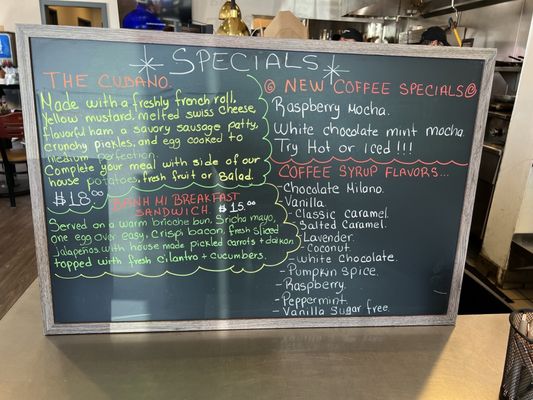 SPECIALS
THE CUBANO
Made with a freshly french roll,
Yellow mustard, melted swiss cheese,
flavorful ham a savory sausage patty,
crunchy pickles, and egg cooked to
medium perfection.
Complete your meal with side of our
house potatoes, fresh fruit or salad.
$18.00
BANH MI BREAKFAST
SANDWICH $15.00
Served on a warm brioche bun, Sricha mayo,
one egg over easy, crispi bacon, fresh sliced
Jalapeños, with house made pickled carrots + daikon
topped with fresh cilantro + cucumbers.
NEW COFFEE SPECIALS
Raspberry Mocha.
White chocolate mint mocha
Try Hot or Iced !!!
COFFEE SYRUP FLAVORS...
- Chocolate Milano.
- Vanilla.
- Classic Caramel.
- Salted Caramel.
- Lavender.
- Coconut.
- White Chocolate.
- Pumpkin Spice.
- Raspberry.
- Peppermint.
- Vanilla Sugar free.